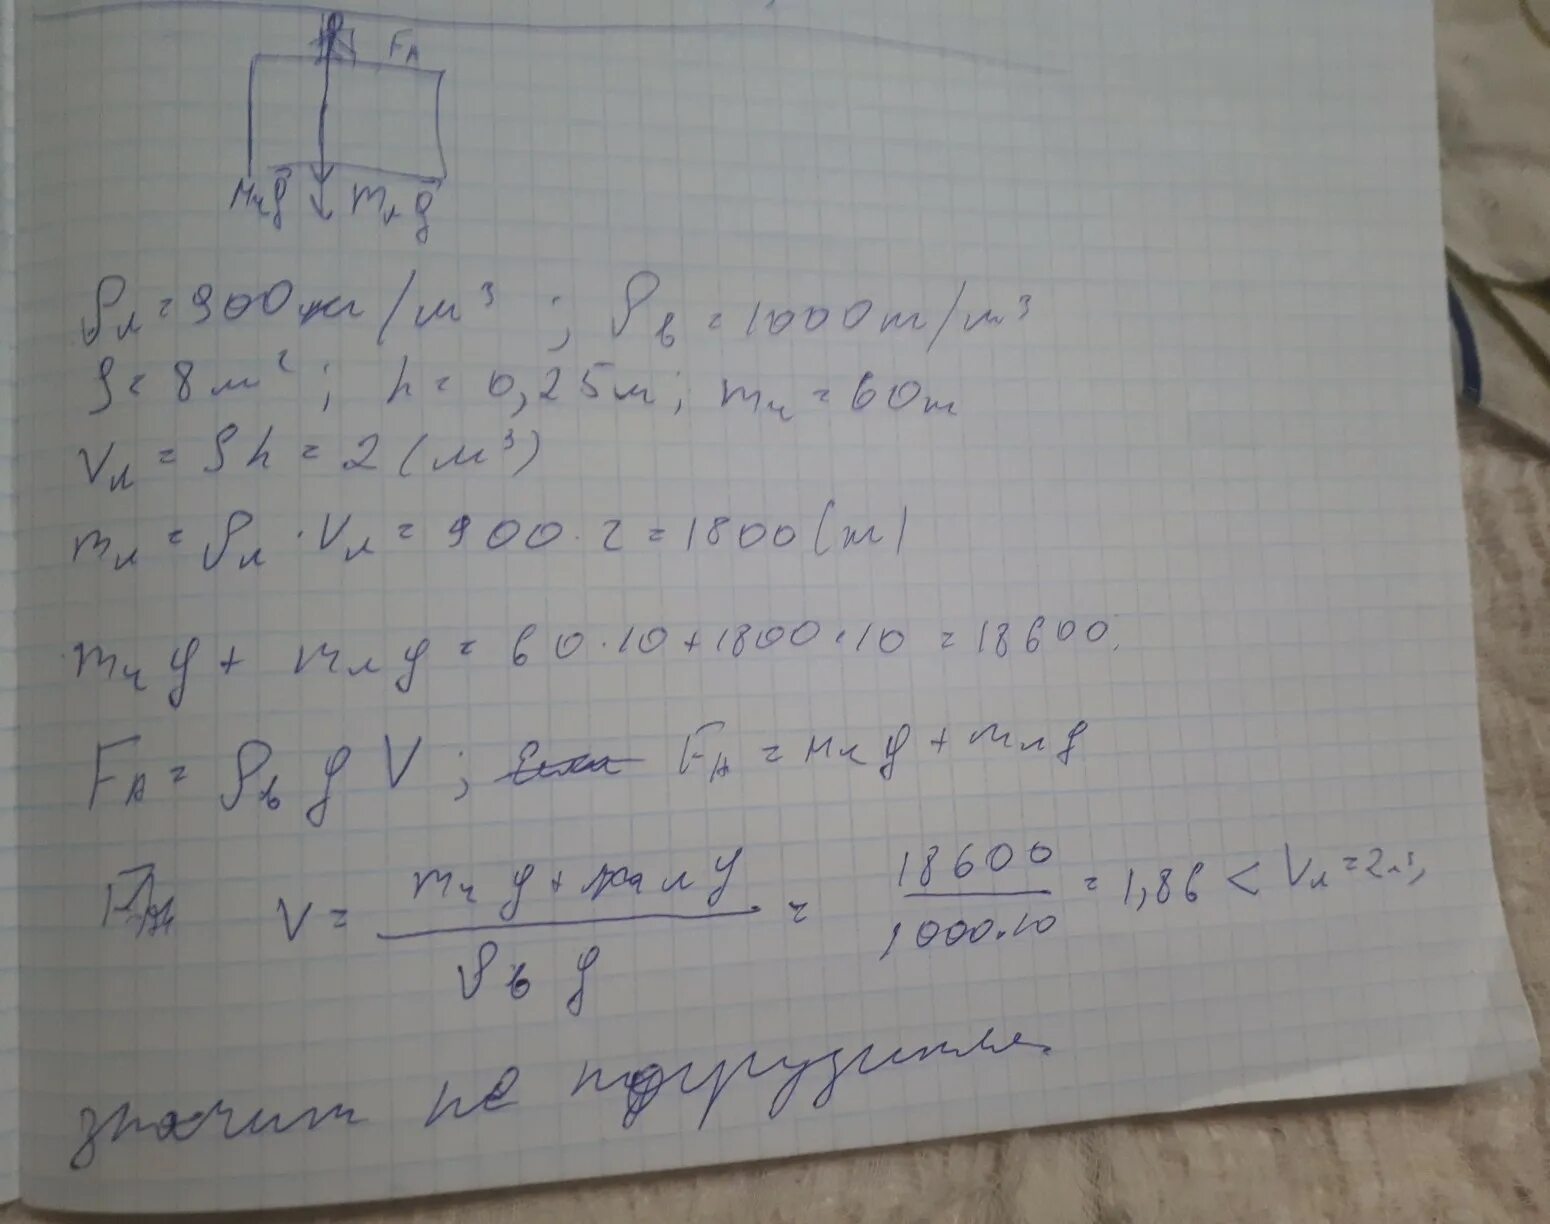 F_A
m_ч g m_л g
ρ_л = 900 кг/м³ ; ρ_в = 1000 кг/м³
S = 8 м² ; h = 0,25 м; m_ч = 60 кг
V_л = Sh = 2 (м³)
m_л = ρ_л · V_л = 900 · 2 = 1800 (кг)
m_ч g + m_л g = 60·10 + 1800·10 = 18600.
F_A = ρ_в g V ; F_A = m_ч g + m_л g
V = (m_ч g + m_л g) / (ρ_в g) = 18600 / (1000·10) = 1,86 < V_л = 2 м³,
значит не погрузится.